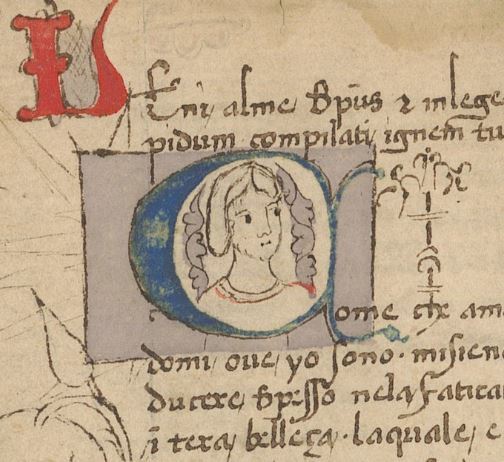 VEni alme spūs & in lege
pidum compilati ignem tu
Come ch ama
domi oue yo sono misien
ducere spesso nela fatica
ī tera belleça laquale e